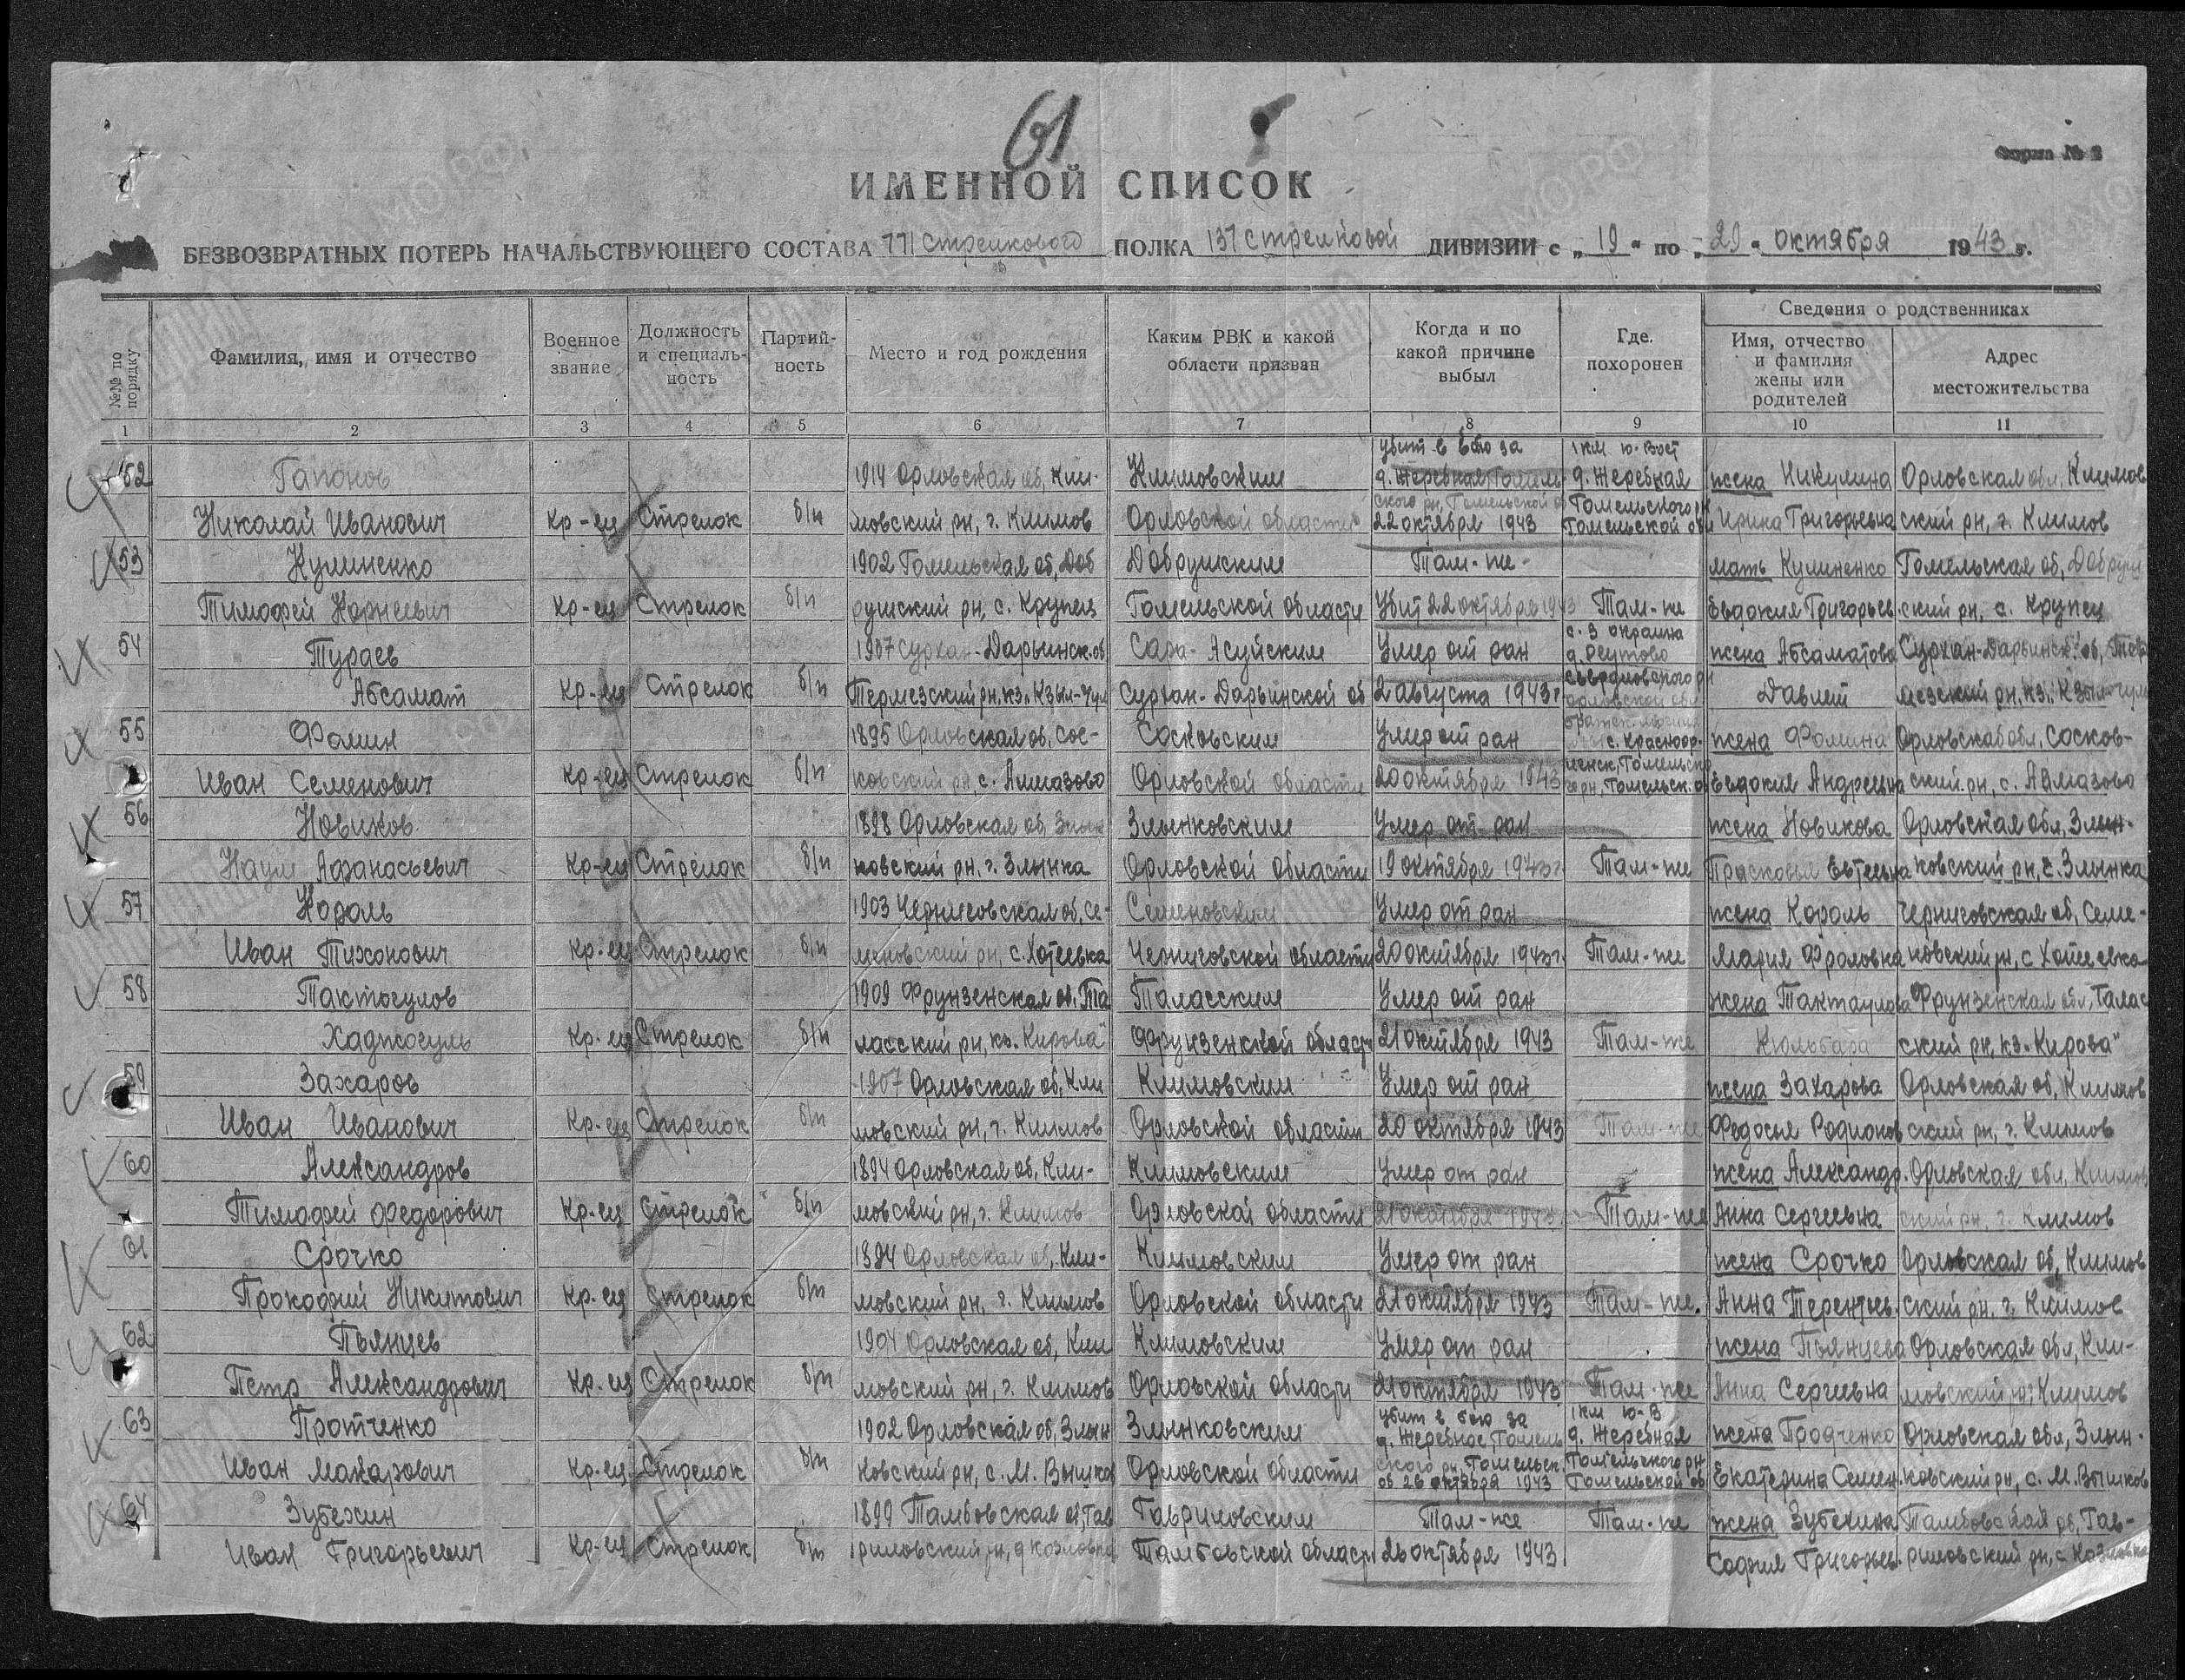 61
Форма № 2
ИМЕННОЙ СПИСОК
БЕЗВОЗВРАТНЫХ ПОТЕРЬ НАЧАЛЬСТВУЮЩЕГО СОСТАВА 771 стрелкового ПОЛКА 137 стрелковой ДИВИЗИИ с „19" по „29" октября 1943 г.
№№ по порядку
Фамилия, имя и отчество
Военное звание
Должность и специаль-ность
Партий-ность
Место и год рождения
Каким РВК и какой области призван
Когда и по какой причине выбыл
Где. похоронен
Сведения о родственниках
Имя, отчество и фамилия жены или родителей
Адрес местожительства
1 2 3 4 5 6 7 8 9 10 11
убит в бою за 1 км ю. Вост
52 Гапонов 1914 Орловская об, Кли- Климовским д. Жеребная Гомель- д. Жеребная жена Никулина Орловская обл, Климов
ского рн, Гомельской об Гомельского рн
Николай Иванович Кр-ец Стрелок б/п мовский рн, г. Климов Орловской области 22 октября 1943 Гомельской обл Ирина Григорьевна ский рн, г. Климов
53 Кулиненко 1902 Гомельская об, Доб Добрушским Там-же- мать Кулиненко Гомельская об, Добруш
Тимофей Корнеевич Кр-ец Стрелок б/п рушский рн, с. Крупец Гомельской области Убит 22 октября 1943 Там-же Евдокия Григорьев. ский рн, с. Крупец
с. З окраина
54 Тураев 1907 Сурхан-Дарьинск. об Сара-Асуйским Умер от ран д. Реутово жена Абсаматова Сурхан-Дарьинск. об, Тер
Свердловского рн
Абсамат Кр-ец Стрелок б/п Термезский рн, кз „Кзыл- Сурхан-Дарьинской об 2 августа 1943 г Орловской обл Давлет мезский рн, кз „Кзыл-
55 Фомин 1895 Орловская об, Сос- Сосковским Умер от ран с. Красноар- жена Фомина Орловская обл, Сосков-
менск, Гомельско
Иван Семенович Кр-ец Стрелок б/п ковский рн, с. Алмазово Орловской области 20 октября 1943 го рн, Гомельск. об Евдокия Андреевна ский рн, с. Алмазово
56 Новиков 1898 Орловская об, Злын Злынковским Умер от ран жена Новикова Орловская обл, Злын-
Наум Афанасьевич Кр-ец Стрелок б/п ковский рн, г. Злынка Орловской области 19 октября 1943 г Там-же Прасковья ковский рн, г. Злынка
57 Король 1903 Черниговская об, Се- Семеновским Умер от ран жена Король Черниговская об, Семе-
Иван Тихонович Кр-ец Стрелок б/п меновский рн, с. Хотеевка Черниговской области 20 октября 1943 г. Там-же Мария Фроловна новский рн, с Хотеевка
58 Тактогулов 1909 Фрунзенская об, Та Таласским Умер от ран жена Тактаулова Фрунзенская обл, Талас
Хаджогуль Кр-ец Стрелок б/п ласский рн, кз „Кирова" Фрунзенской област 21 октября 1943 Там-же Кюльбара ский рн, кз „Кирова"
59 Захаров 1907 Орловская об, Кли Климовским Умер от ран жена Захарова Орловская об, Климов
Иван Иванович Кр-ец Стрелок б/п мовский рн, г. Климов Орловской области 20 октября 1943 Там-же Федосья Родионов ский рн, г. Климов
60 Александров 1894 Орловская об, Кли- Климовским Умер от ран жена Александр. Орловская обл, Климов
Тимофей Федорович Кр-ец Стрелок б/п мовский рн, г. Климов Орловской области 21 октября 1943 Там-же Анна Сергеевна ский рн, г. Климов
61 Срочко 1894 Орловская об, Кли- Климовским Умер от ран жена Срочко Орловская об, Климов
Прокофий Никитович Кр-ец Стрелок б/п мовский рн, г. Климов Орловской области 21 октября 1943 Там-же. Анна Терентьев. ский рн, г. Климов
62 Пьянцев 1904 Орловская об, Кли Климовским Умер от ран жена Пьянцева Орловская обл, Кли-
Петр Александрович Кр-ец Стрелок б/п мовский рн, г. Климов Орловской области 21 октября 1943 Там-же Анна Сергеевна мовский рн, г Климов
убит в бою за 1 км Ю-В
63 Протченко 1902 Орловская об, Злын Злынковским д. Жеребное, Гомель д. Жеребная жена Продченко Орловская обл, Злын-
ского рн, Гомельск. Гомельского рн
Иван Макарович Кр-ец Стрелок б/п ковский рн, с. М. Вышков Орловской области об 26 октября 1943 Гомельской об Екатерина Семен. ковский рн, с. М. Вышков
64 Зубехин 1899 Тамбовская об, Гав Гавриловским Там-же Там-же жена Зубехина Тамбовская об, Гав-
Иван Григорьевич Кр-ец Стрелок б/п риловский рн, д Козловка Тамбовской област 26 октября 1943 София Григорьев. риловский рн, с. Козловка